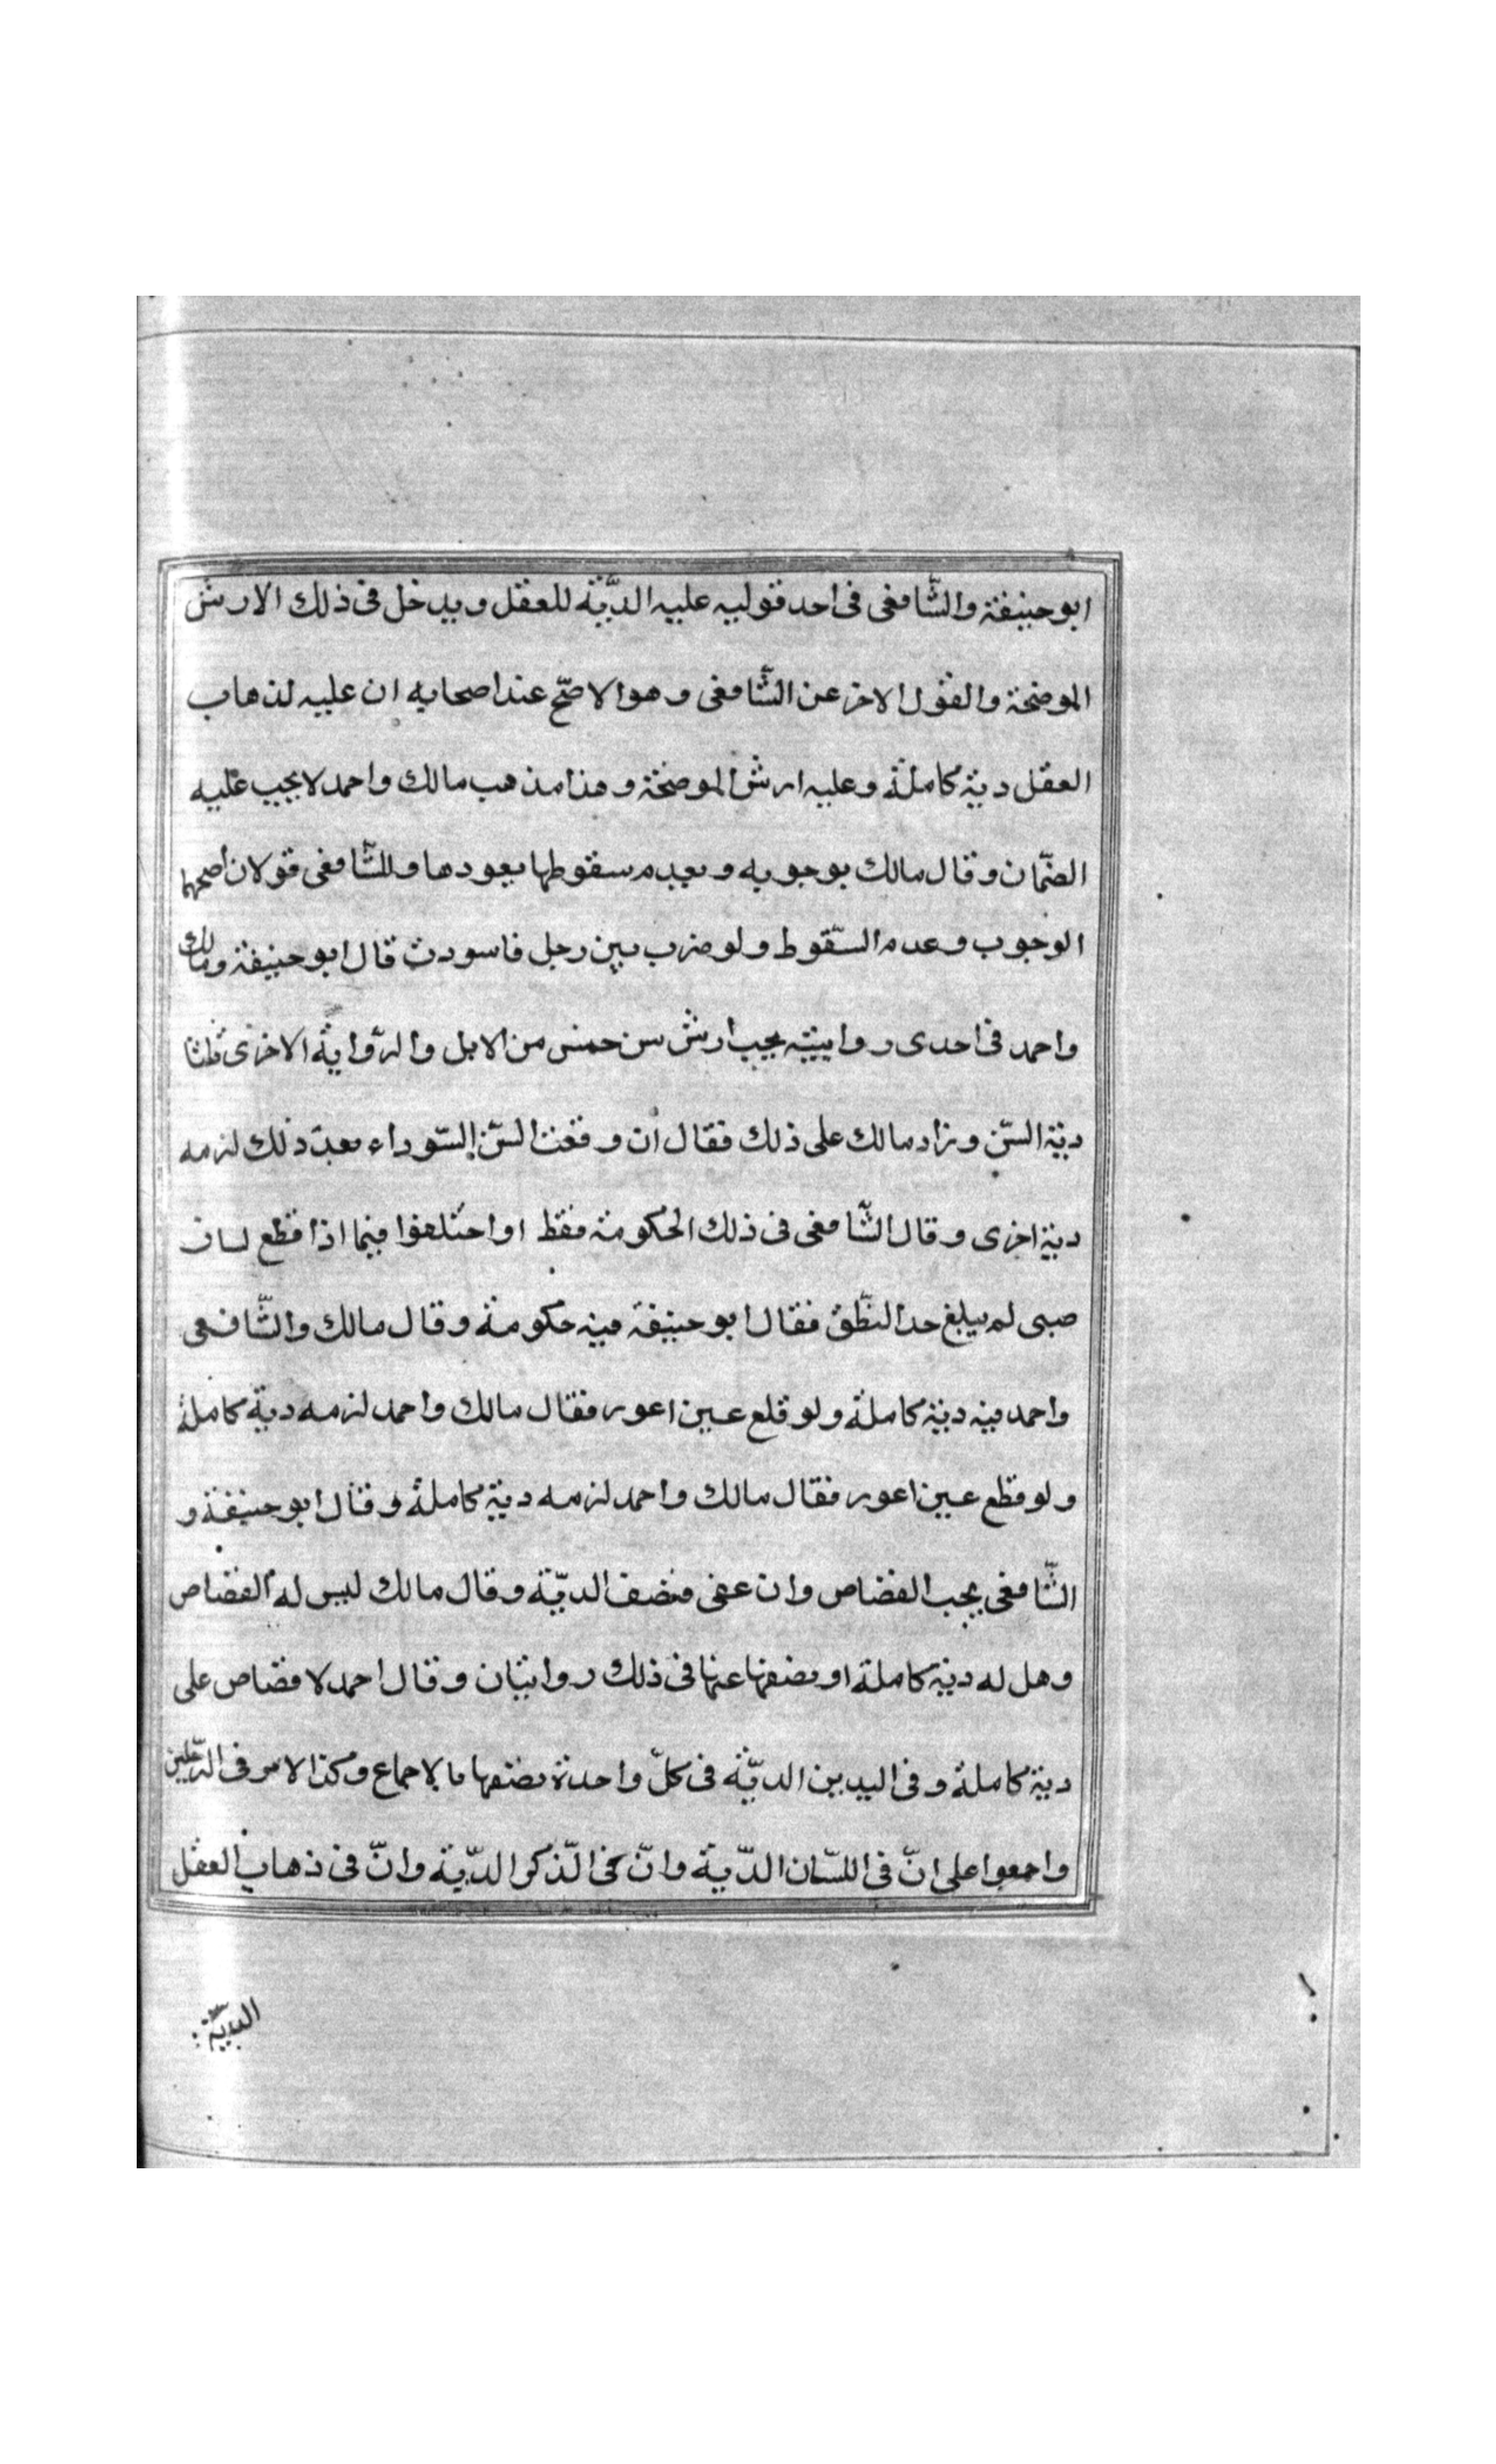 ابو حنيفة والشّافعى فى احد قوليه عليه الديّة للعقل ويدخل فى ذلك الارش
الموضحة والقول الاخر عن الشّافعى وهو الاصّح عند اصحابه ان عليه لذهاب
العقل دية كاملة وعليه ارش الموضحة وهذا مذهب مالك واحمد لا يجب عليه
الضّمان وقال مالك بوجوبه وبعدم سقوطها بعودها وللشّافعى قولان اصحهما
الوجوب وعدم السّقوط ولو ضرب سن رجل فاسودت قال ابو حنيفة ومالك
واحمد فى احدى روايتيه يجب ارش سن خمس من الابل والرّواية الاخرى ثلثا
دية السّن وزاد مالك على ذلك فقال ان وقعت السّن السّوداء بعد ذلك لزمه
دية اخرى وقال الشّافعى فى ذلك الحكومة فقط اواختلفوا فيما اذا قطع لسان
صبى لم يبلغ حد النطّق فقال ابو حنيفة فيه حكومة وقال مالك والشّافعى
واحمد فيه دية كاملة ولو قلع عين اعور فقال مالك واحمد لزمه دية كاملة
ولو قطع عين اعور فقال مالك واحمد لزمه دية كاملة وقال ابو حنيفة و
الشّافعى يجب القصاص وان عفى فنصف الديّة وقال مالك ليس له القصاص
وهل له دية كاملة او نصفها عنها فى ذلك روايتان وقال احمد لا قصاص على
دية كاملة وفى اليدين الديّة فى كلّ واحدة نصفها بالاجماع وكذا الامر فى الرّجلين
واجمعوا على انّ فى اللسّان الدّية وانّ فى الذّكر الدّية وانّ فى ذهاب العقل
الديّة